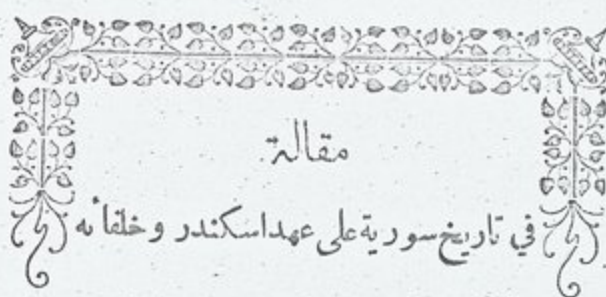 مقالة
في تاريخ سورية على عهد اسكندر وخلفائه